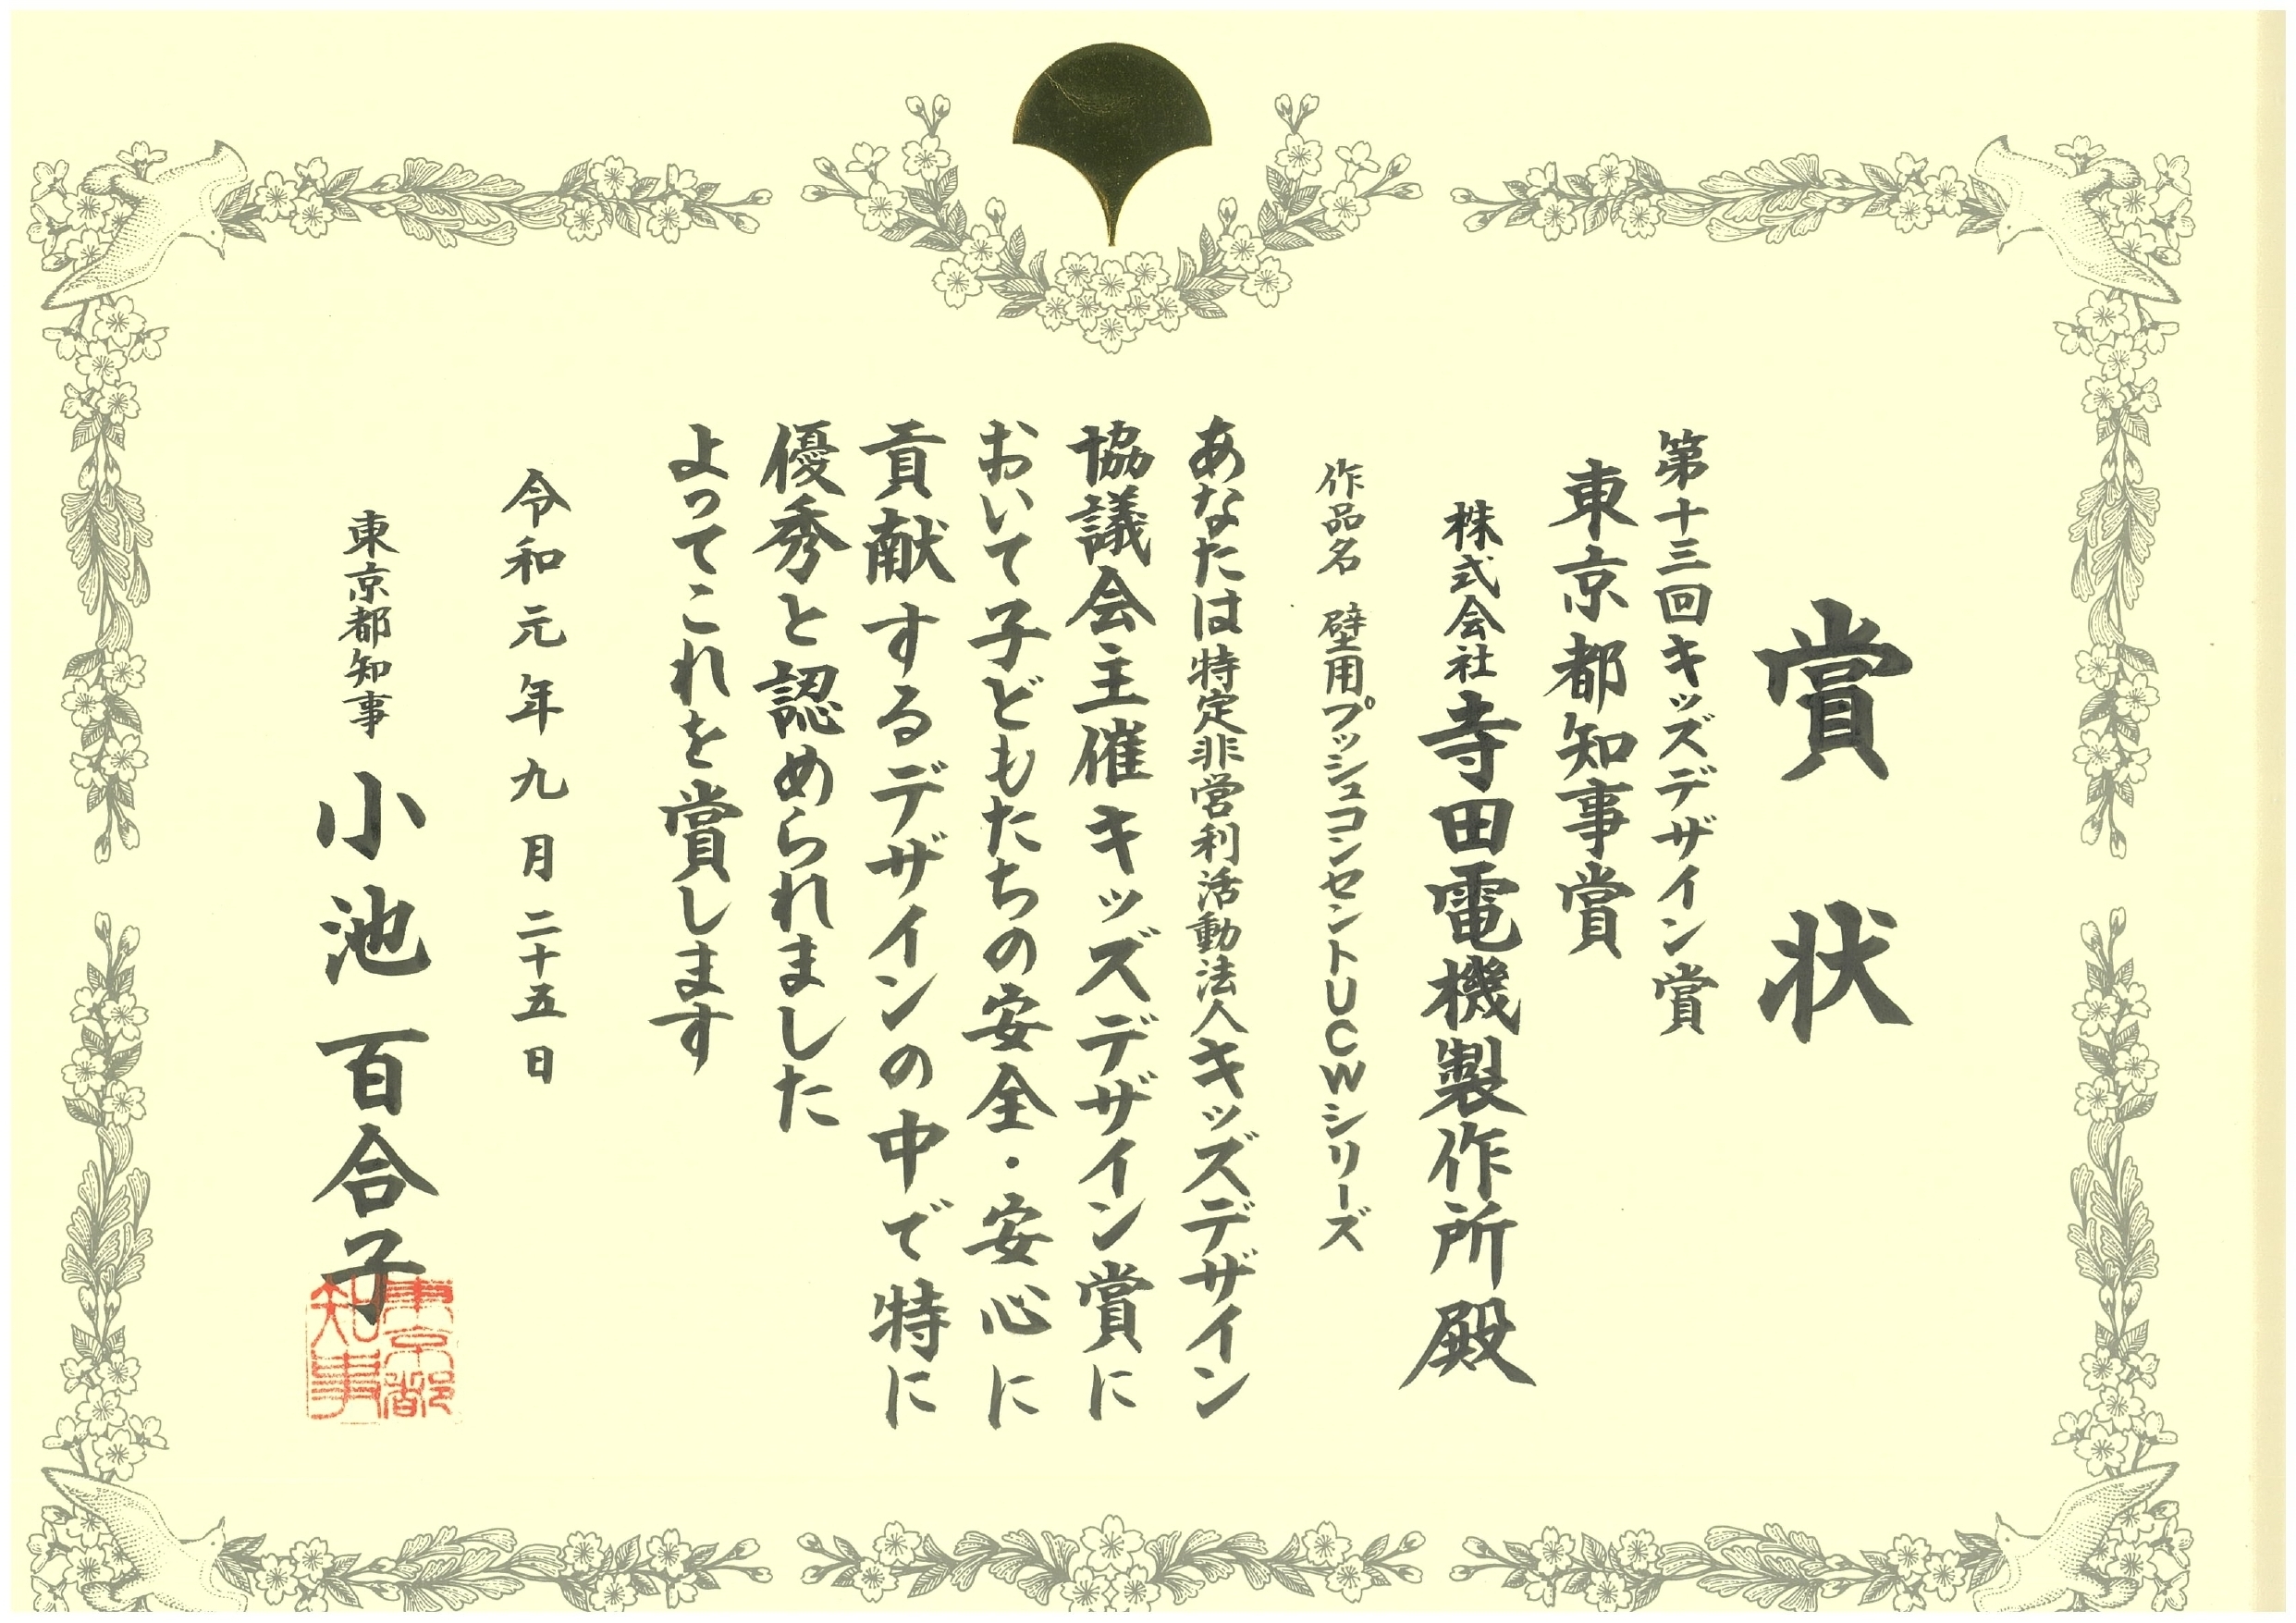 賞状
第十三回キッズデザイン賞
東京都知事賞
株式会社寺田電機製作所殿
作品名 壁用プッシュコンセントUCWシリーズ
あなたは特定非営利活動法人キッズデザイン
協議会主催キッズデザイン賞に
おいて子どもたちの安全・安心に
貢献するデザインの中で特に
優秀と認められました
よってこれを賞します
令和元年九月二十五日
東京都知事 小池百合子
東京都
知事